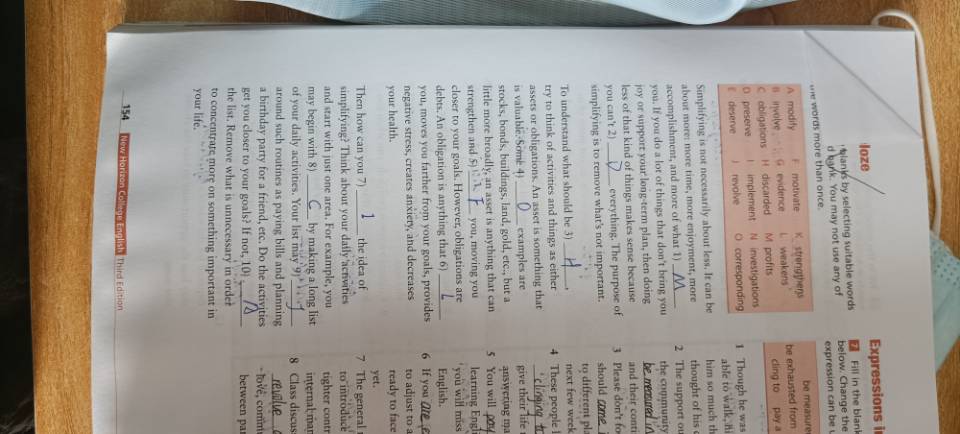 loze
Expressions i
blanks by selecting suitable words
d bank. You may not use any of
the words more than once.
7 Fill in the blank
below. Change the
expression can be u
A modify F motivate K strengthens
B involve G evidence L weakens
C obligations H discarded M profits
D preserve I implement N investigations
E deserve J revolve O corresponding
be measure
be exhausted from
cling to pay a
Simplifying is not necessarily about less. It can be
about more: more time, more enjoyment, more
accomplishment, and more of what 1) M
you. If you do a lot of things that don't bring you
joy or support your long-term plan, then doing
less of that kind of things makes sense because
you can't 2) D everything. The purpose of
simplifying is to remove what's not important.
To understand what should be 3) H,
try to think of activities and things as either
assets or obligations. An asset is something that
is valuable. Some 4) O examples are
stocks, bonds, buildings, land, gold, etc., but a
little more broadly, an asset is anything that can
strengthen and 5) F you, moving you
closer to your goals. However, obligations are
debts. An obligation is anything that 6) L
you, moves you farther from your goals, provides
negative stress, creates anxiety, and decreases
your health.
Then how can you 7) I the idea of
simplifying? Think about your daily activities
and start with just one area. For example, you
may begin with 8) C by making a long list
of your daily activities. Your list may 9) J
around such routines as paying bills and planning
a birthday party for a friend, etc. Do the activities
get you closer to your goals? If not, 10) A
the list. Remove what is unnecessary in order
to concentrate more on something important in
your life.
1 Though he was
able to walk, hi
him so much th
thought of his
2 The support ou
the community
be measured in
and their conti
3 Please don't fo
should come
to different pla
next few week
4 These people l
clinging to
give their life
answering ma
5 You will pay
learning Engli
you will miss
English.
6 If you are e
to adjust to a
ready to face
yet.
7 The general
to introduce
tighter contr
internal man
8 Class discus
revolve
love, commu
between par
154 New Horizon College English Third Edition